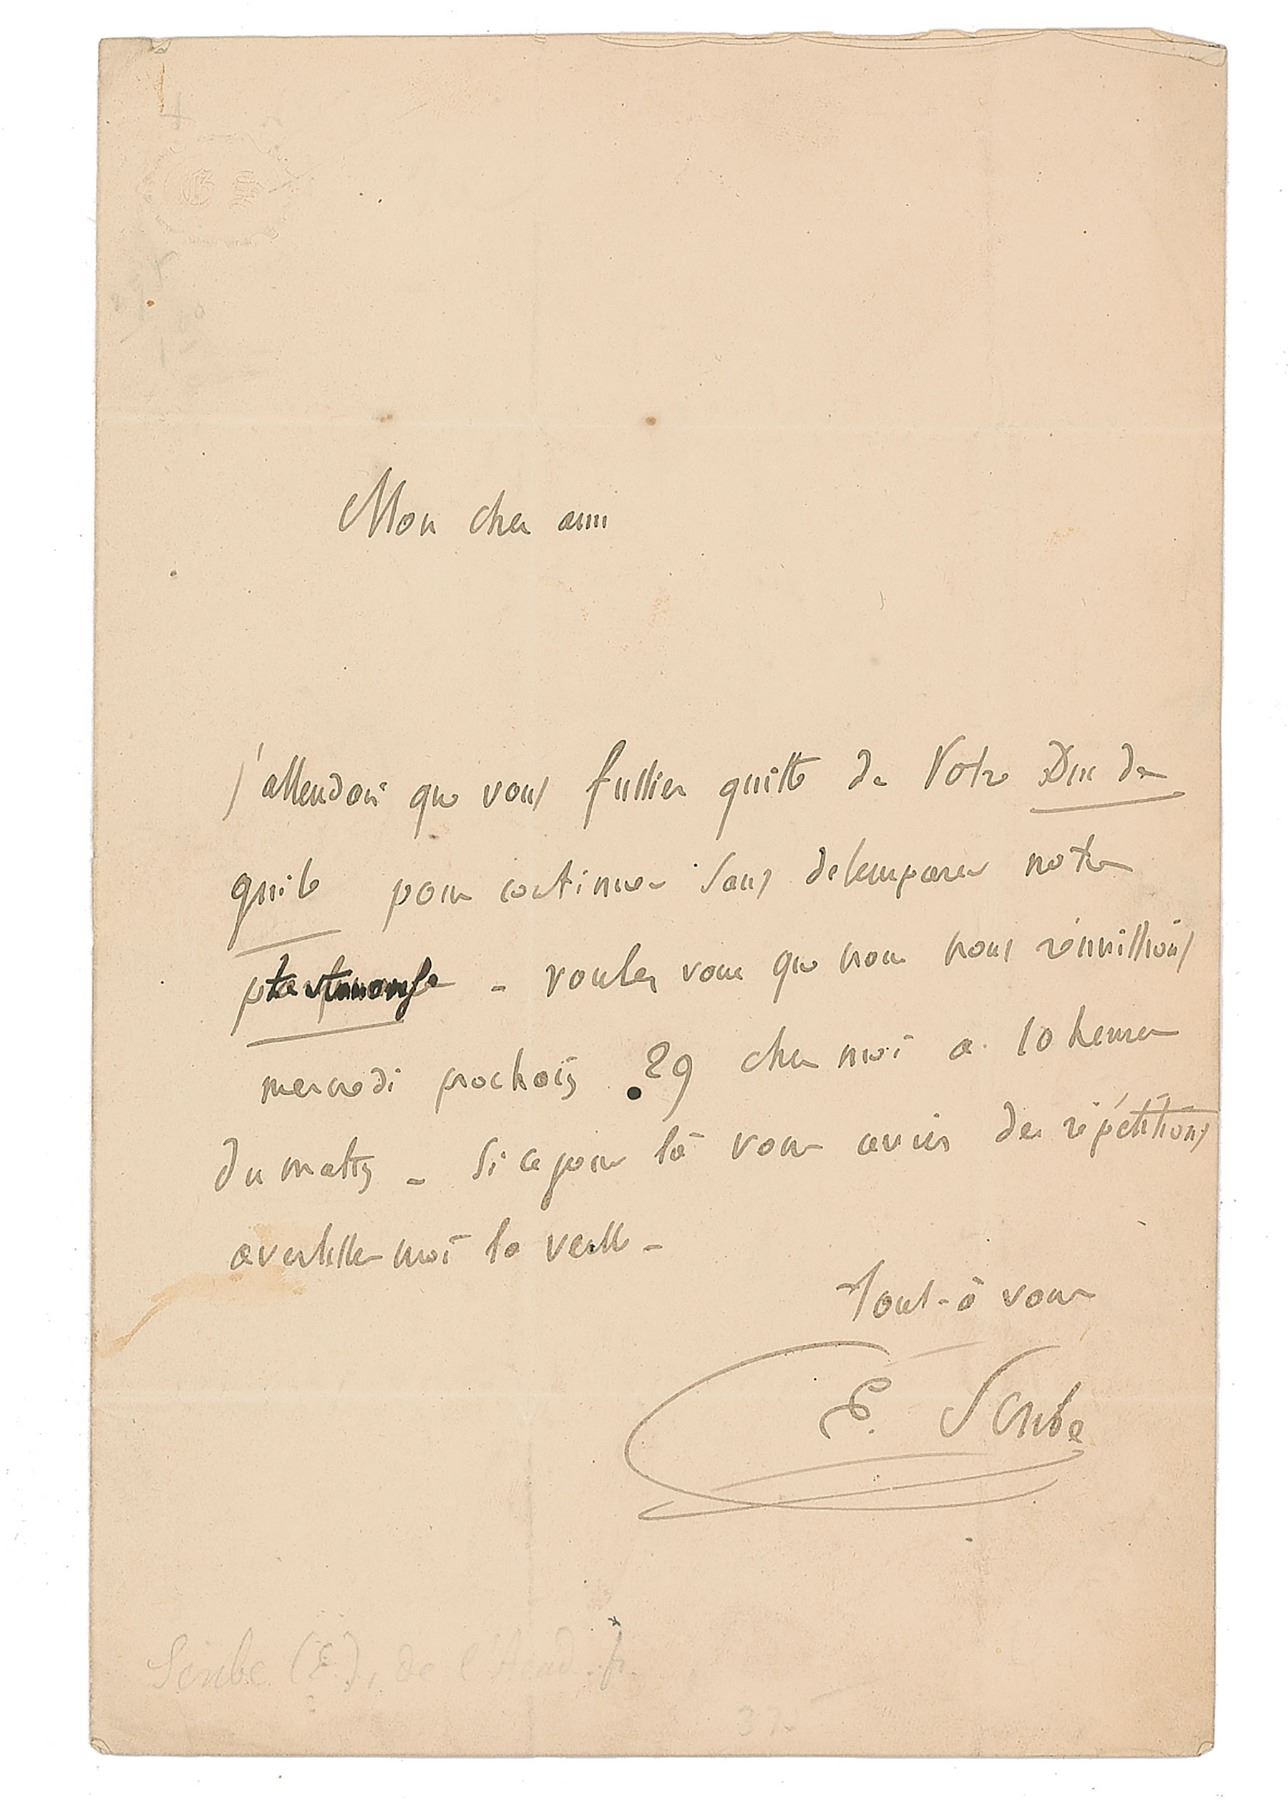 E S
Mon cher ami
j'attendais que vous fussiez quitte de Votre Duc de
guise pour continuer sans desemparer notre
- voulez vous que nous nous réunissions
mercredi prochain 29 chez moi a 10 heures
du matin - Si ce jour là vous aviez des répétitions
avertissez moi la veille -
Tout-à vous
E. Scribe
Scribe (E.), de l'Acad. fr.